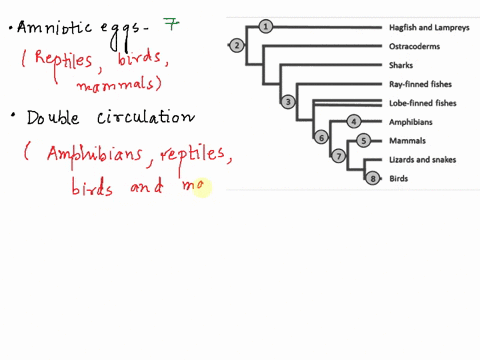 • Amniotic eggs - 7
( Reptiles, birds,
mammals)
• Double circulation
( Amphibians, reptiles,
birds and ma
1
Hagfish and Lampreys
2
Ostracoderms
Sharks
Ray-finned fishes
3
Lobe-finned fishes
4
Amphibians
6
5
Mammals
7
Lizards and snakes
8
Birds